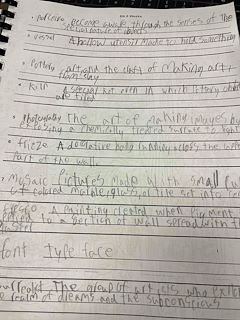 perceive become aware through the senses of the
vessel A hollow utensil made to hold something
Pottery art and the craft of making art
from clay
Kiln A special hot oven in which pottery objects
are fired
photography The art of making images by
exposing a chemically treated surface to light
frieze A decorative band running across the
part of the wall
Mosaic Pictures Made With Small
of colored marble, glass, or tile set into
Fresco A painting created when pigment
to a section of wall spread with
plaster
font type face
surrealist The group of artists who explored
the realm of dreams and the subconscious